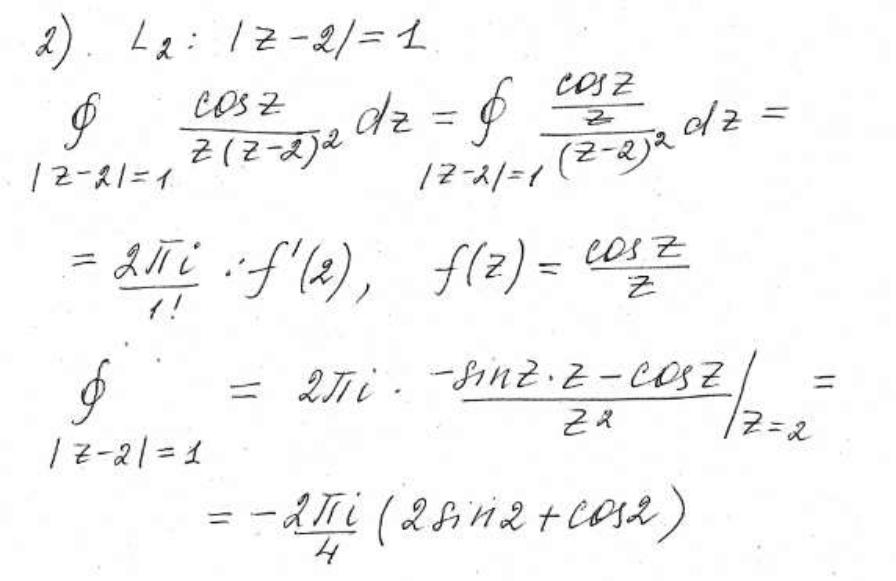 2). L₂: |z-2|=1
∮_{|z-2|=1} \frac{cos z}{z(z-2)^2} dz = ∮_{|z-2|=1} \frac{\frac{cos z}{z}}{(z-2)^2} dz =
= \frac{2πi}{1!} · f'(2), f(z) = \frac{cos z}{z}
∮_{|z-2|=1} = 2πi · \frac{-sin z · z - cos z}{z^2} |_{z=2} =
= -\frac{2πi}{4} (2 sin 2 + cos 2)